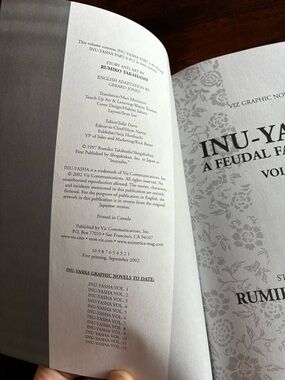 This volume contains INU-YASHA PART
INU-YASHA PART
STORY AND ART BY
RUMIKO TAKAHASHI
ENGLISH ADAPTATION BY
GERARD JONES
Translation/Mari Morimoto
Touch-Up Art & Lettering/Wayne Truman
Cover Design/Hidemi Sahara
Layout/Sean Lee
Editor/Julie Davis
Editor-in-Chief/Hyoe Narita
Publisher/Seiji Horibuchi
VP of Sales and Marketing/Rick Bauer
© 1997 Rumiko Takahashi/Shogakukan, Inc.
First Published by Shogakukan, Inc. in Japan
INU-YASHA is a trademark of Viz Communications, Inc.
© 2002 Viz Communications, Inc. All rights reserved. No
unauthorized reproduction allowed. The stories, characters,
and incidents mentioned in this publication are entirely
fictional. For the purposes of publication in English, the
artwork in this publication is in reverse from the original
Japanese version.
Printed in Canada
Published by Viz Communications, Inc.
P.O. Box 77010 • San Francisco, CA 94107
10 9 8 7 6 5 4 3 2 1
First printing, September 2002
INU-YASHA GRAPHIC NOVELS TO DATE:
INU-YASHA VOL. 1
INU-YASHA VOL. 2
INU-YASHA VOL. 3
INU-YASHA VOL. 4
INU-YASHA VOL. 5
INU-YASHA VOL. 6
INU-YASHA VOL. 7
INU-YASHA VOL. 8
INU-YASHA VOL. 9
INU-YASHA VOL. 10
INU-YASHA VOL. 11
VIZ GRAPHIC NOV
INU-YA
A FEUDAL FA
VOL
ST
RUMIK